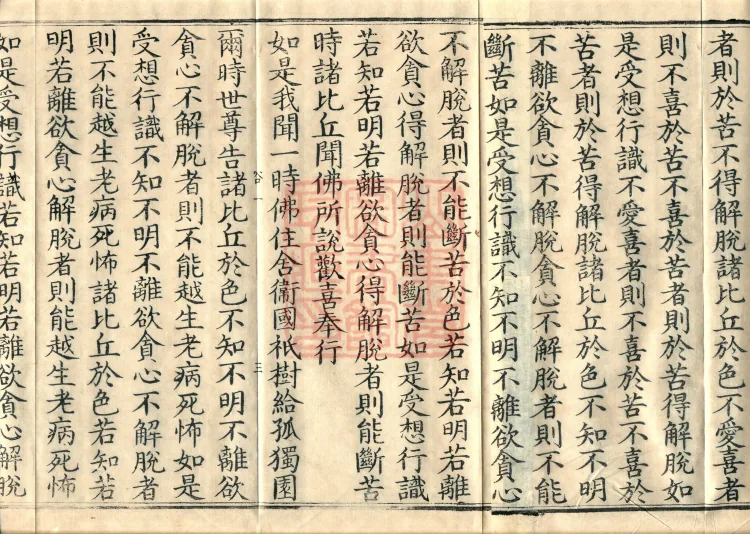 者則於苦不得解脫諸比丘於色不愛喜者
則不喜於苦不喜於苦者則於苦得解脫如
是受想行識不愛喜者則不喜於苦不喜於
苦者則於苦得解脫諸比丘於色不知不明
不離欲貪心不解脫貪心不解脫者則不能
斷苦如是受想行識不知不明不離欲貪心
不解脫者則不能斷苦於色若知若明若離
欲貪心得解脫者則能斷苦如是受想行識
若知若明若離欲貪心得解脫者則能斷苦
時諸比丘聞佛所說歡喜奉行
如是我聞一時佛住舍衞國祇樹給孤獨園
谷一 三
爾時世尊告諸比丘於色不知不明不離欲
貪心不解脫者則不能越生老病死怖如是
受想行識不知不明不離欲貪心不解脫者
則不能越生老病死怖諸比丘於色若知若
明若離欲貪心解脫者則能越生老病死怖
如是受想行識若知若明若離欲貪心解脫